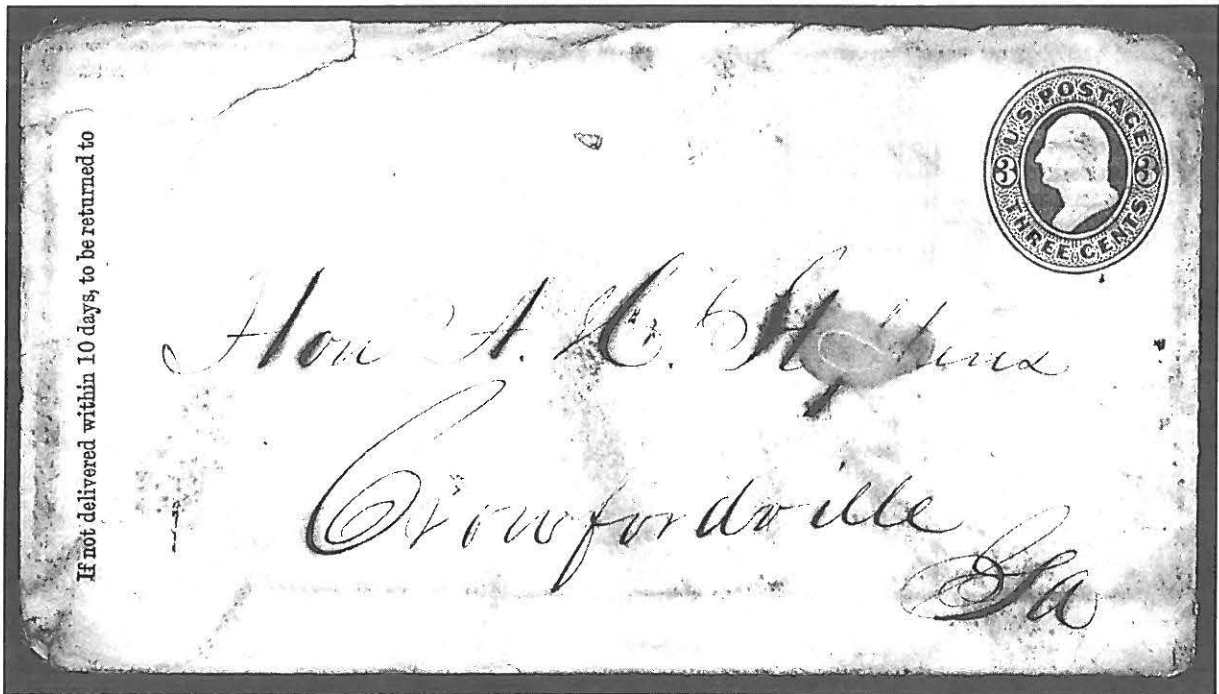 If not delivered within 10 days, to be returned to
U.S. POSTAGE
3 3
THREE CENTS
Hon A. H. Stephens
Crowfordville
Ga